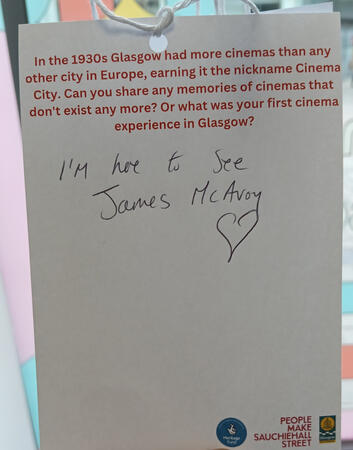 In the 1930s Glasgow had more cinemas than any
other city in Europe, earning it the nickname Cinema
City. Can you share any memories of cinemas that
don't exist any more? Or what was your first cinema
experience in Glasgow?
I'M here to See
James McAvoy
Heritage
Fund
PEOPLE
MAKE
SAUCHIEHALL
STREET